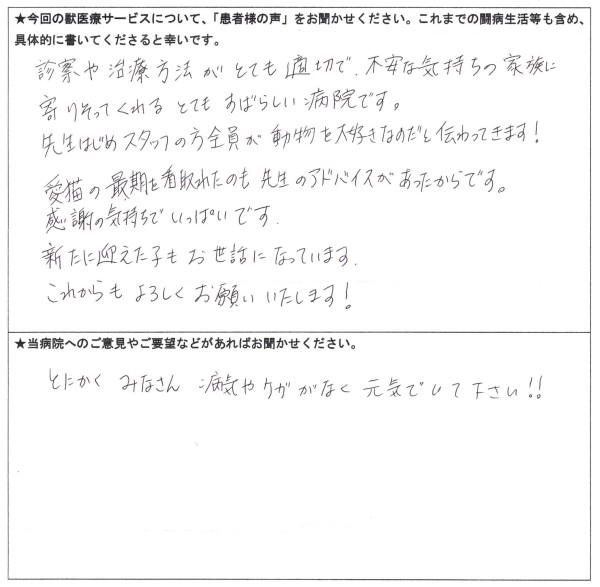 ★今回の獣医療サービスについて、「患者様の声」をお聞かせください。これまでの闘病生活等も含め、
具体的に書いてくださると幸いです。
診察や治療方法がとても適切で、不安な気持ちの家族に
寄りそってくれるとてもすばらしい病院です。
先生はじめスタッフの方全員が動物を大好きなのだと伝わってきます!
愛猫の最期を看取れたのも先生のアドバイスがあったからです。
感謝の気持ちでいっぱいです.
新たに迎えた子もお世話になっています.
これからもよろしくお願いいたします!
★当病院へのご意見やご要望などがあればお聞かせください。
とにかくみなさん病気やケガがなく元気でいて下さい!!